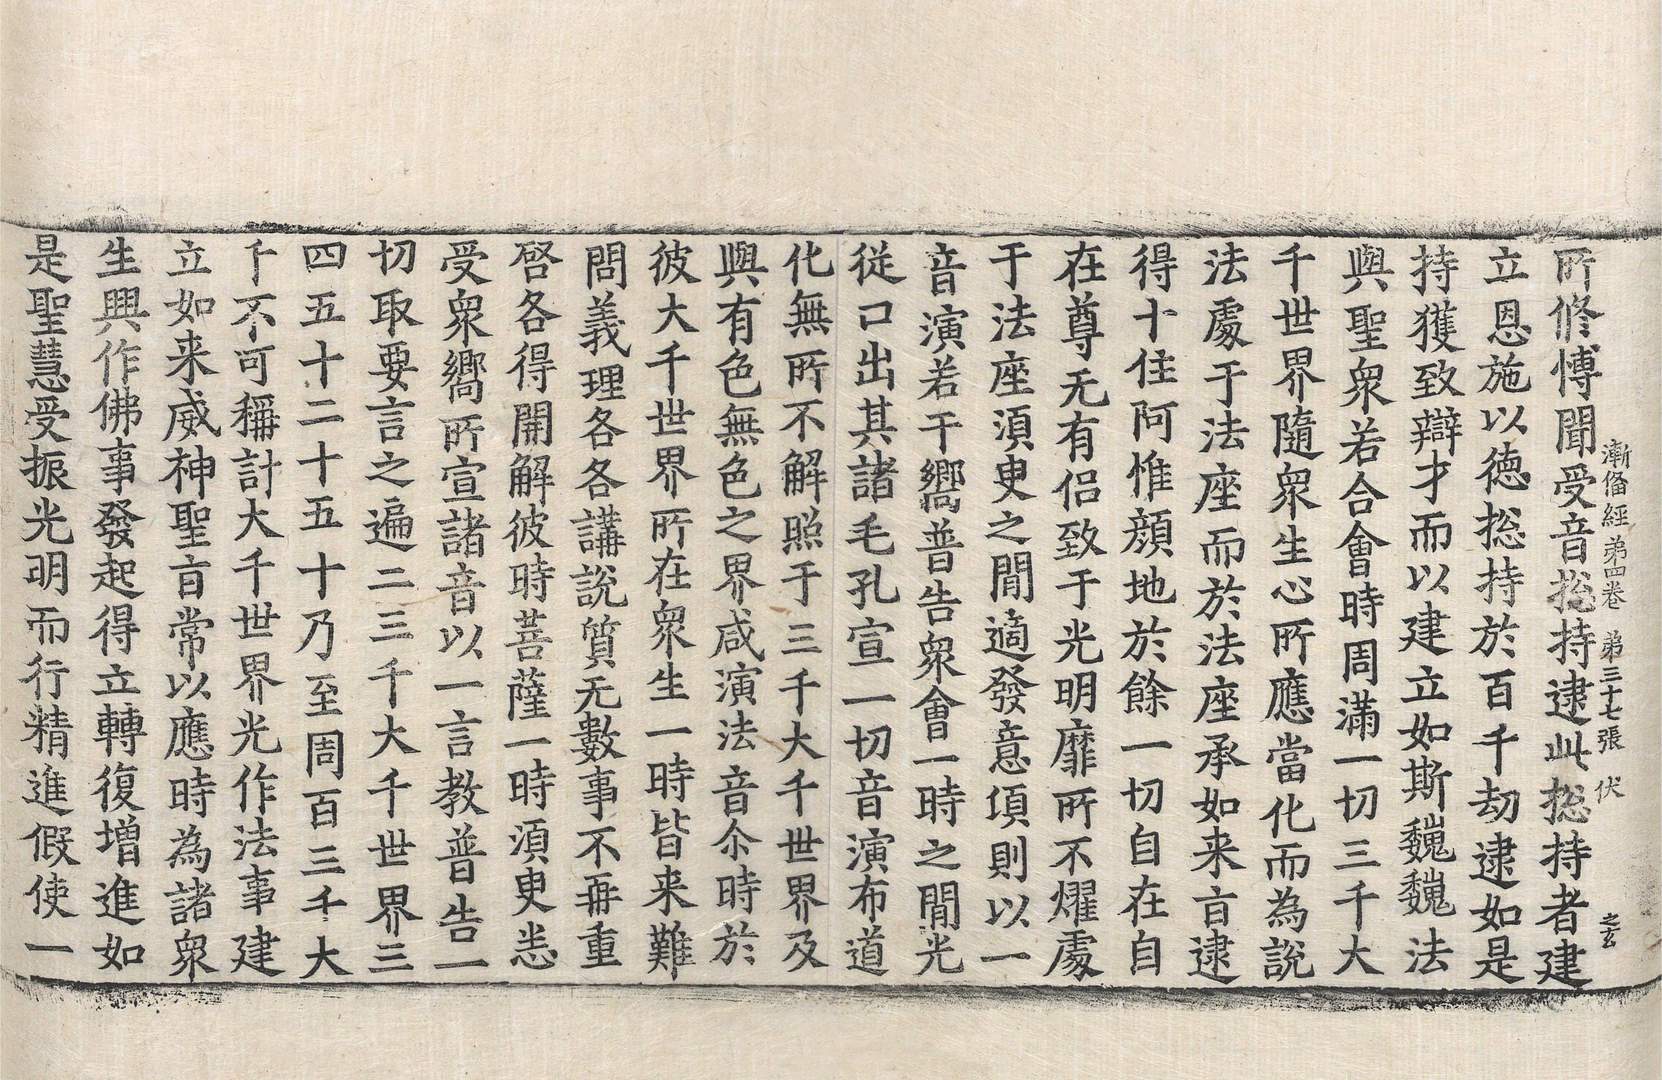 漸俻經苐四卷 苐三十七張 伏 之玄
所修博聞受音捴持逮此捴持者建
立恩施以德捴持於百千劫逮如是
持獲致辯才而以建立如斯巍巍法
與聖衆若合會時周滿一切三千大
千世界隨衆生心所應當化而為說
法處于法座而於法座承如来㫖逮
得十住阿惟顔地於餘一切自在自
在尊无有侣致于光明靡所不燿處
于法座湏臾之閒適發意頃則以一
音演若干嚮普告衆會一時之閒光
従口出其諸毛孔宣一切音演布道
化無所不解照于三千大千世界及
與有色無色之界咸演法音尒時於
彼大千世界所在衆生一時皆来難
問義理各各講說質无數事不再重
啓各得開解彼時菩薩一時湏臾悉
受衆嚮所宣諸音以一言教普告一
切取要言之遍二三千大千世界三
四五十二十五十乃至周百三千大
千不可稱計大千世界光作法事建
立如来威神聖㫖常以應時為諸衆
生興作佛事發起得立轉復增進如
是聖慧受振光明而行精進假使一